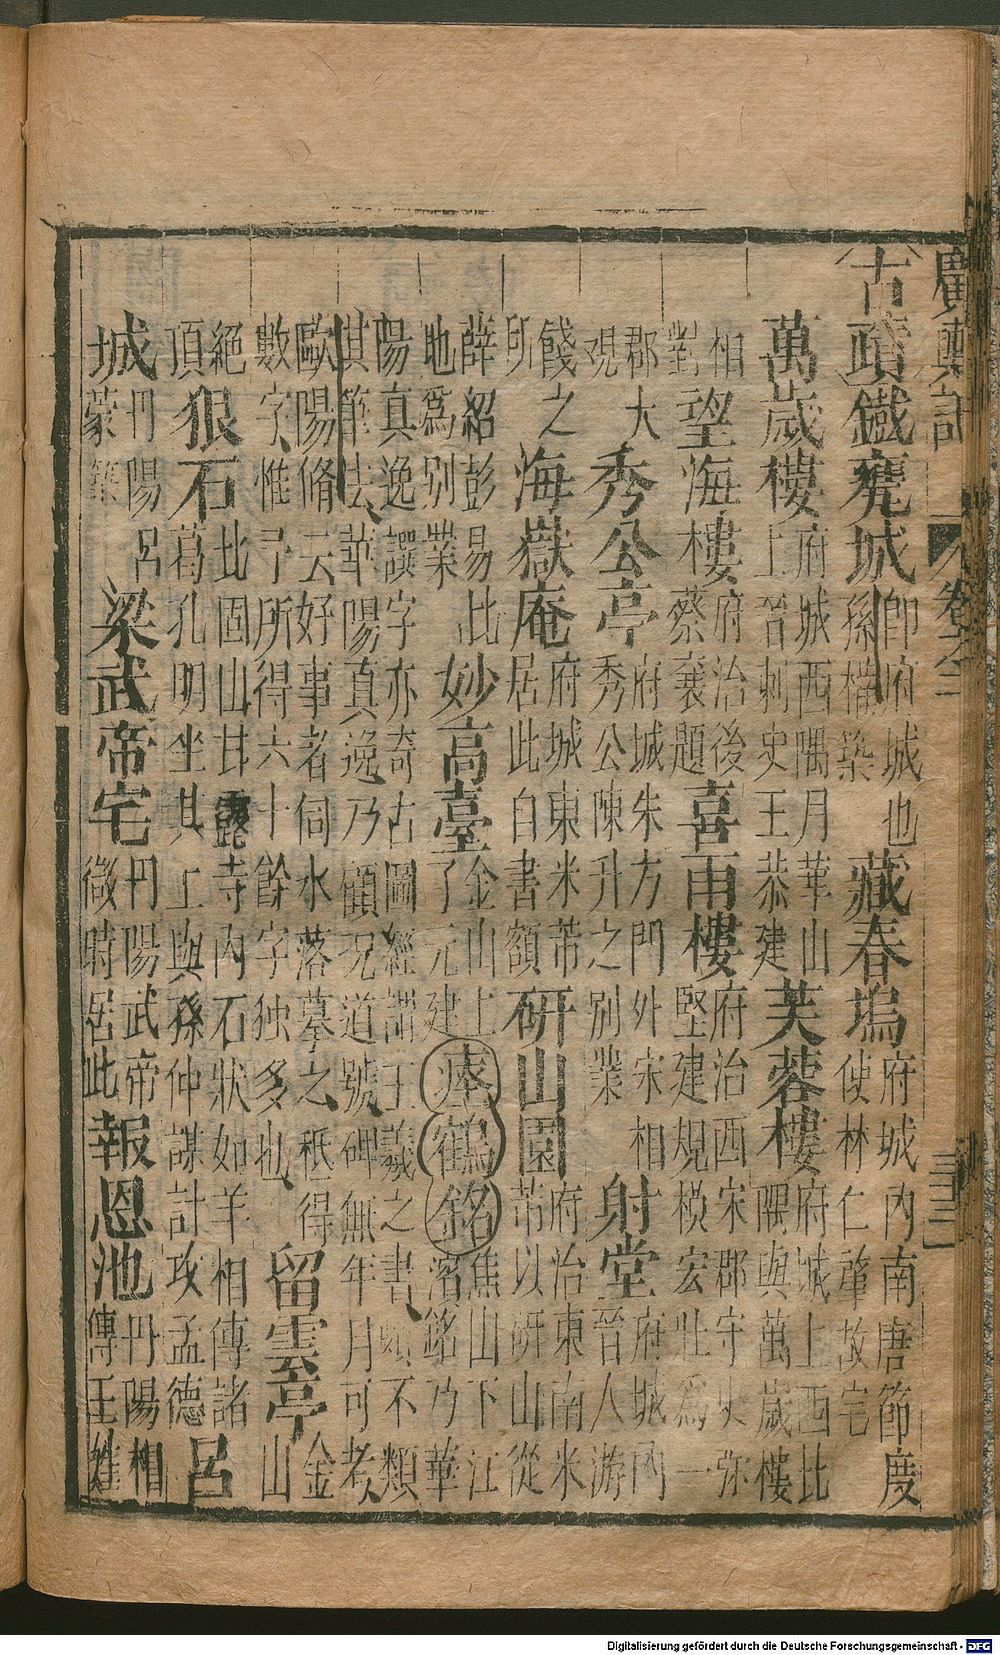 廣輿記 卷之二 三三
古蹟 鐵甕城 即府城也孫權築 藏春塢 府城內南唐節度使林仁肇故宅
萬歲樓 府城西隅月華山上晉刺史王恭建 芙蓉樓 府城上西北隅與萬歲樓
相對 望海樓 府治後蔡襄題 喜雨樓 府治西宋郡守史弥堅建規模宏壯為一
郡大觀 秀公亭 府城朱方門外宋相秀公陳升之別業 射堂 府城內晉人游
餞之所 海嶽庵 府城東米芾居此白書額 研山園 府治東南米芾以研山從
薛紹彭易此地爲別業 妙高臺 金山上了元建 瘞鶴銘 焦山下江濱銘乃華
陽真逸譔字亦奇古圖經謂王羲之書頗不類其筆法華陽真逸乃顧況道號碑無年月可考
歐陽脩云好事者伺水落摹之秪得數字惟予所得六十餘字独多也 留雲亭 金山
絕頂 狠石 北固山甘露寺內石狀如羊相傳諸葛孔明坐其上與孫仲謀計攻孟德 呂
城 丹陽呂蒙築 梁武帝宅 丹陽武帝微時居此 報恩池 丹陽相傳王姓
Digitalisierung gefördert durch die Deutsche Forschungsgemeinschaft - DFG